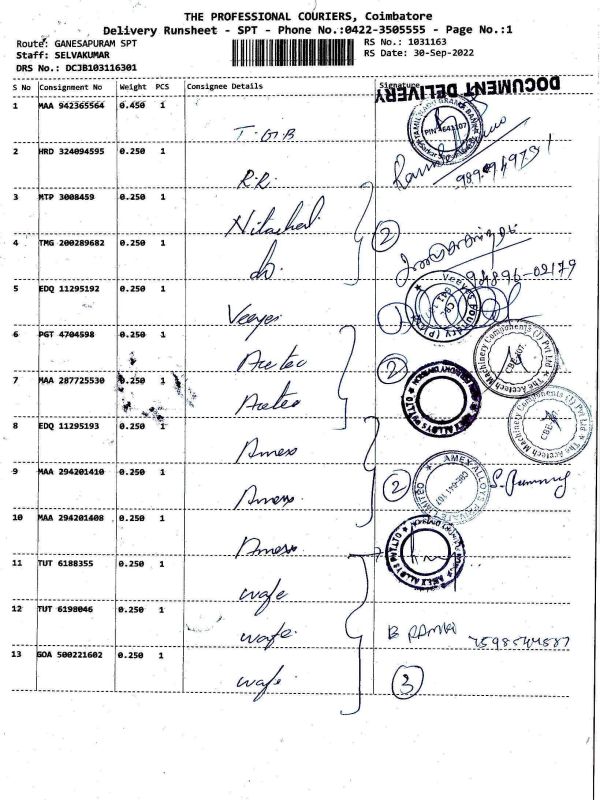 THE PROFESSIONAL COURIERS, Coimbatore
Delivery Runsheet - SPT - Phone No.:0422-3505555 - Page No.:1
Route: GANESAPURAM SPT
Staff: SELVAKUMAR
DRS No.: DCJB103116301
RS No.: 1031163
RS Date: 30-Sep-2022
S No Consignment No Weight PCS Consignee Details Signature
DOCUMENT DELIVERY
1 MAA 942365564 0.450 1 T.G.B
PIN 641107
2 HRD 324094595 0.250 1 R.R.
3 MTP 3008459 0.250 1
4 TMG 200289682 0.250 1 do. 2
5 EDQ 11295192 0.250 1 Veeyes
Veeyes Foundry (P)
6 PGT 4704598 0.250 1 Acetec
The Acetech Machinery Components (I) Pvt Ltd
CBE-107.
7 MAA 287725530 0.250 1 Acetec 2
AMEX ALLOYS PVT LTD
The Acetech Machinery Components (I) Pvt Ltd
8 EDQ 11295193 0.250 1 Amex
9 MAA 294201410 0.250 1 Amex 2
AMEX ALLOYS PRIVATE LIMITED
CBE-641 107
10 MAA 294201408 0.250 1 Amex
AMEX ALLOYS PVT LTD
11 TUT 6188355 0.250 1 wafe
12 TUT 6198046 0.250 1 wafe. B RAMKI
13 GOA 500221602 0.250 1 wafe. 3